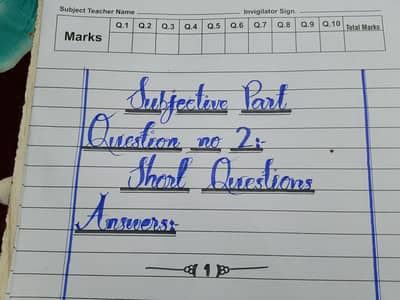 Subject Teacher Name Invigilator Sign.
Marks Q.1 Q.2 Q.3 Q.4 Q.5 Q.6 Q.7 Q.8 Q.9 Q.10 Total Marks
Subjective Part
Question no 2:-
Short Questions
Answers:-
1